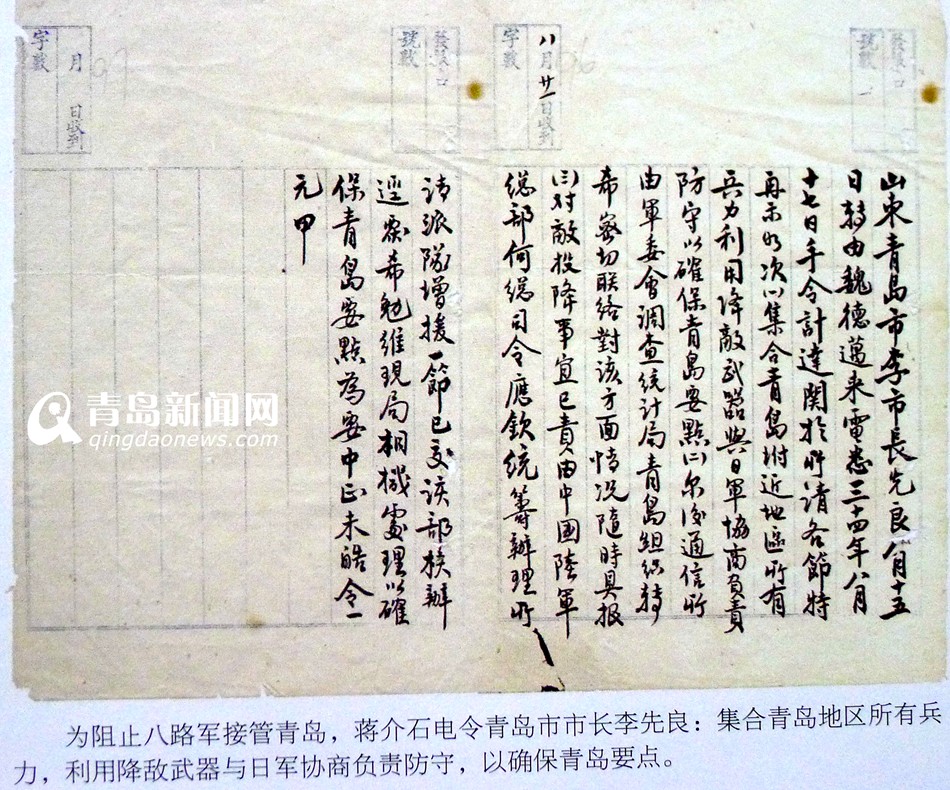 號數
八月廿一日收到
字數
山東青島市李市長先良八月十五
日轉由魏德邁来電悉三十四年八月
十七日手令計達関於所請各節特
再示如次(一)集合青島附近地區所有
兵力利用降敵武器與日軍協商負責
防守以確保青島要點(二)尔後通信所
由軍委會調查統計局青島組织轉
希密切联絡對該方面情况隨時具报
(三)对敵投降事宜已責由中國陸軍
総部何総司令應欽統籌辦理所
號數
月 日收到
字數
請派隊增援一節已交該部核辦
希勉維現局相機處理以確
保青島要點為要中正未皓令一
元甲
青岛新闻网
qingdaonews.com
为阻止八路军接管青岛，蒋介石电令青岛市市长李先良：集合青岛地区所有兵
力，利用降敌武器与日军协商负责防守，以确保青岛要点。